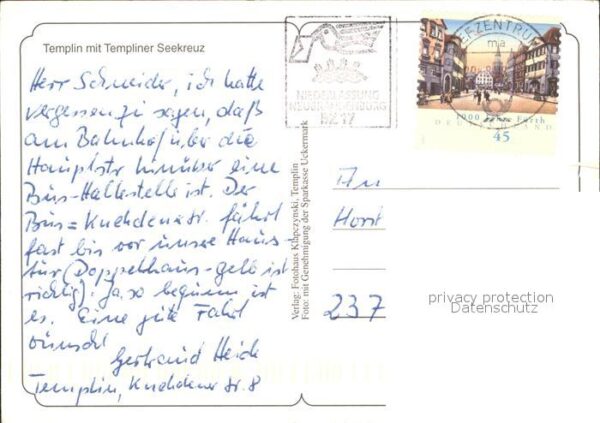 Templin mit Templiner Seekreuz
Herr Schneider, ich hatte
vergessen zu sagen, daß
am Bahnhof über die
Hauptstr hinüber eine
Bus-Haltestelle ist. Der
Bus = Knehdenerstr. fährt
fast bis vor unsere Haus
tür (Doppelhaus-gelb ist
richtig). Ja, so bequem ist
es. Eine gute Fahrt
wünscht
Gertraud Heide
Templin, Knehdener Str. 8
Verlag: Fotohaus Klapczynski, Templin
Foto: mit Genehmigung der Sparkasse Uckermark
NIEDERLASSUNG
NEUBRANDENBURG
BZ 17
EFZENTRUM
1000 Jahre Fürth
DEUTSCHLAND
45
An
Horst
237
privacy protection
Datenschutz